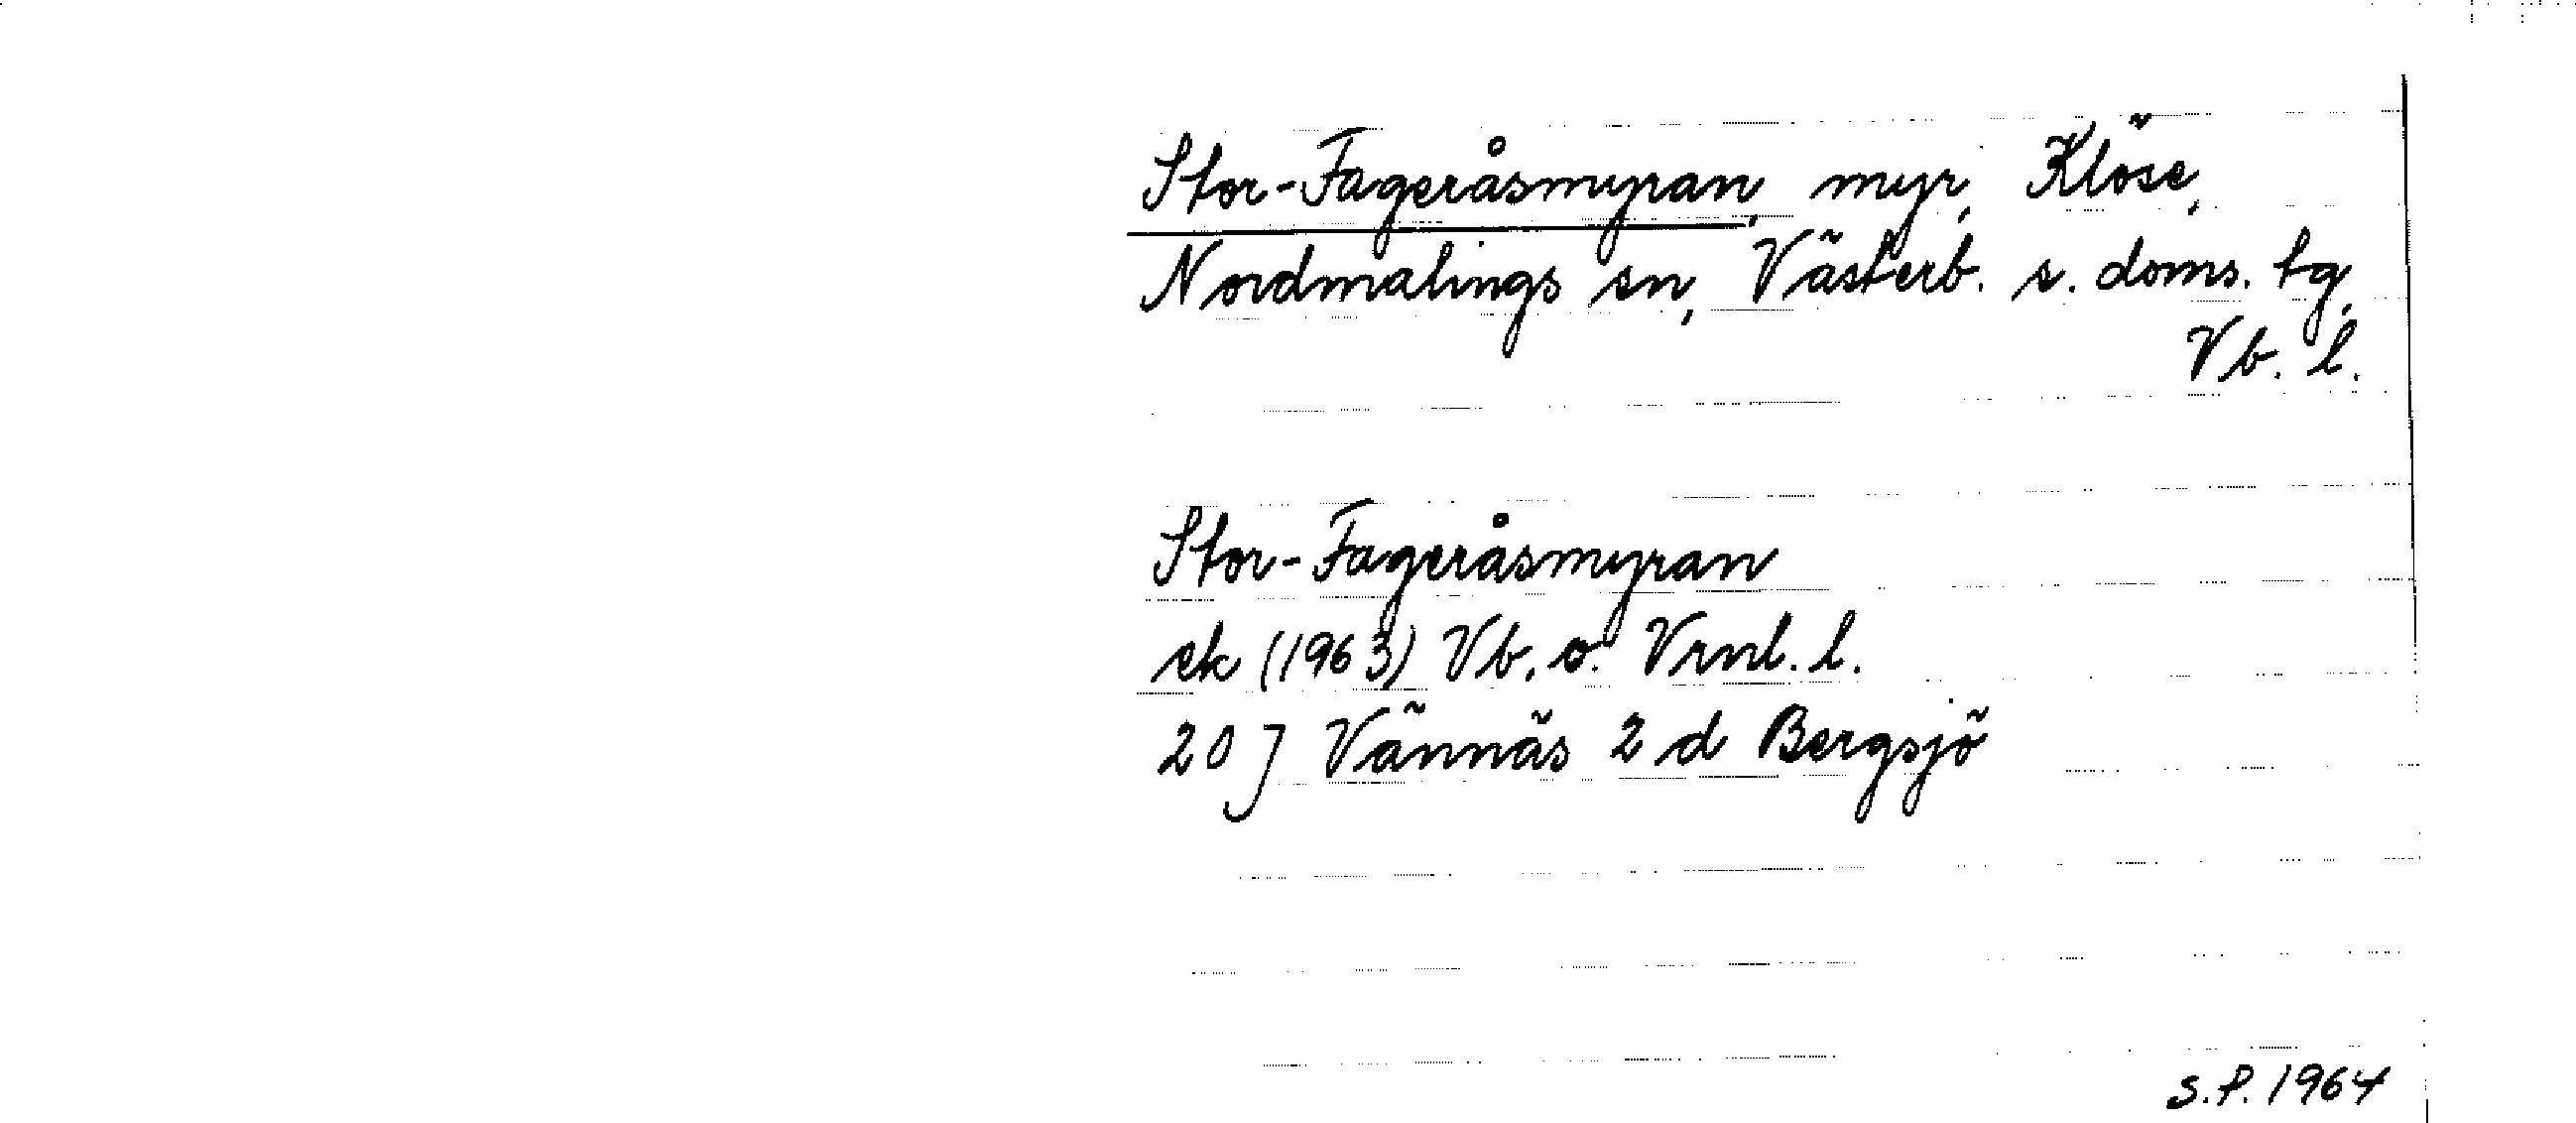 Stor-Fageråsmyran, myr, Klöse,
Nordmalings sn, Västerb. s. doms. tg,
Vb. l.
Stor-Fageråsmyran
ek (1963) Vb. o. Vrnl. l.
20 J Vännäs 2 d Bergsjö
S.P. 1964